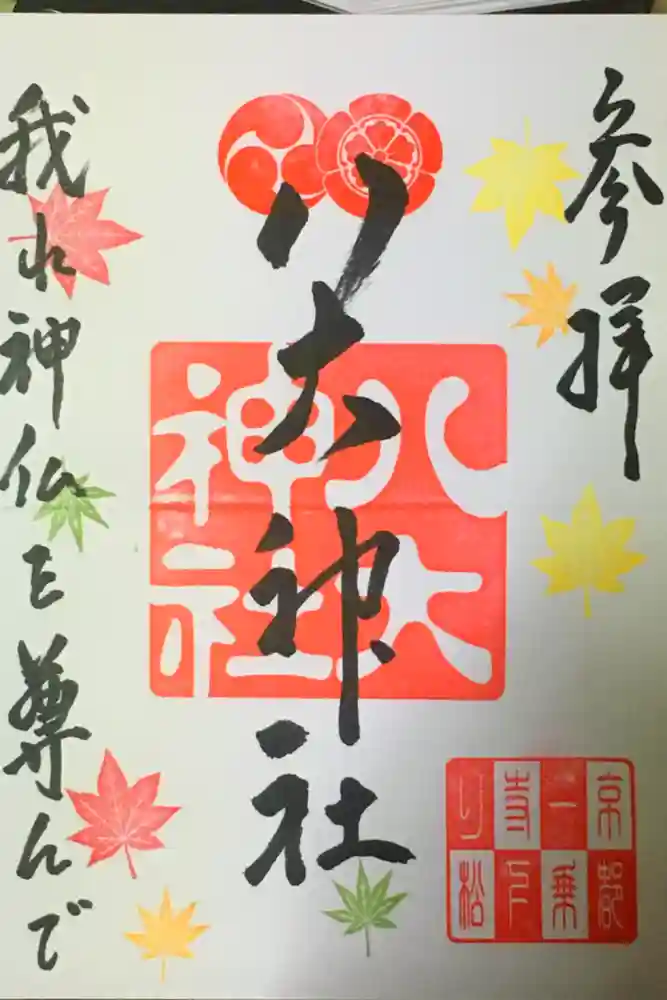 参拝
八大神社
八大
神社
我れ神仏を尊んで
京都
一乗
寺下
り松